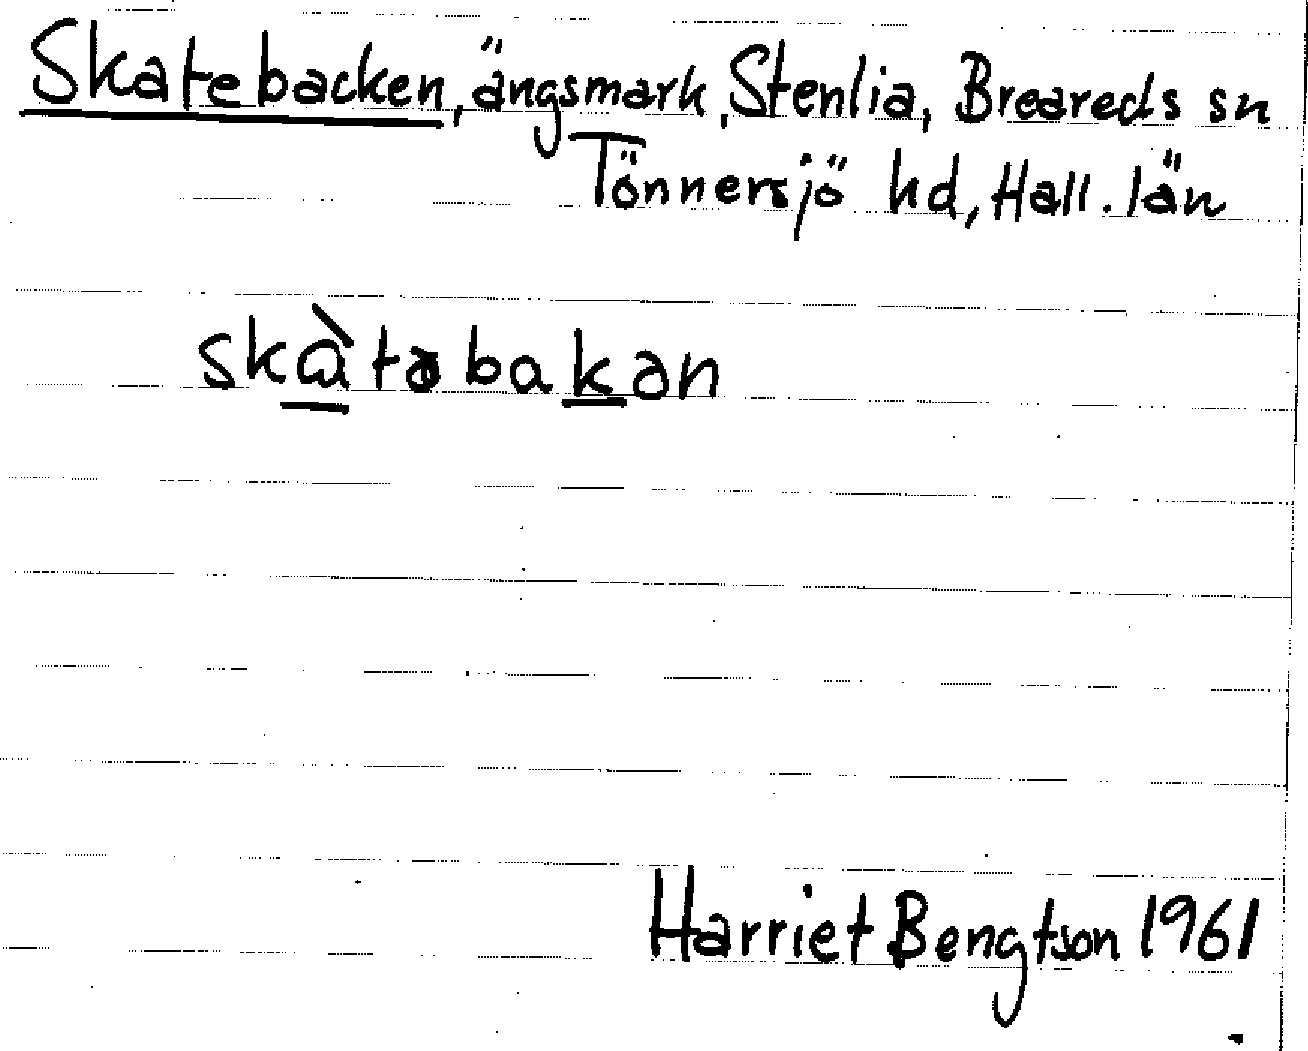 Skatebacken, ängsmark, Stenlia, Breareds sn
Tönnersjö hd, Hall. län
skàtəbakan
Harriet Bengtson 1961